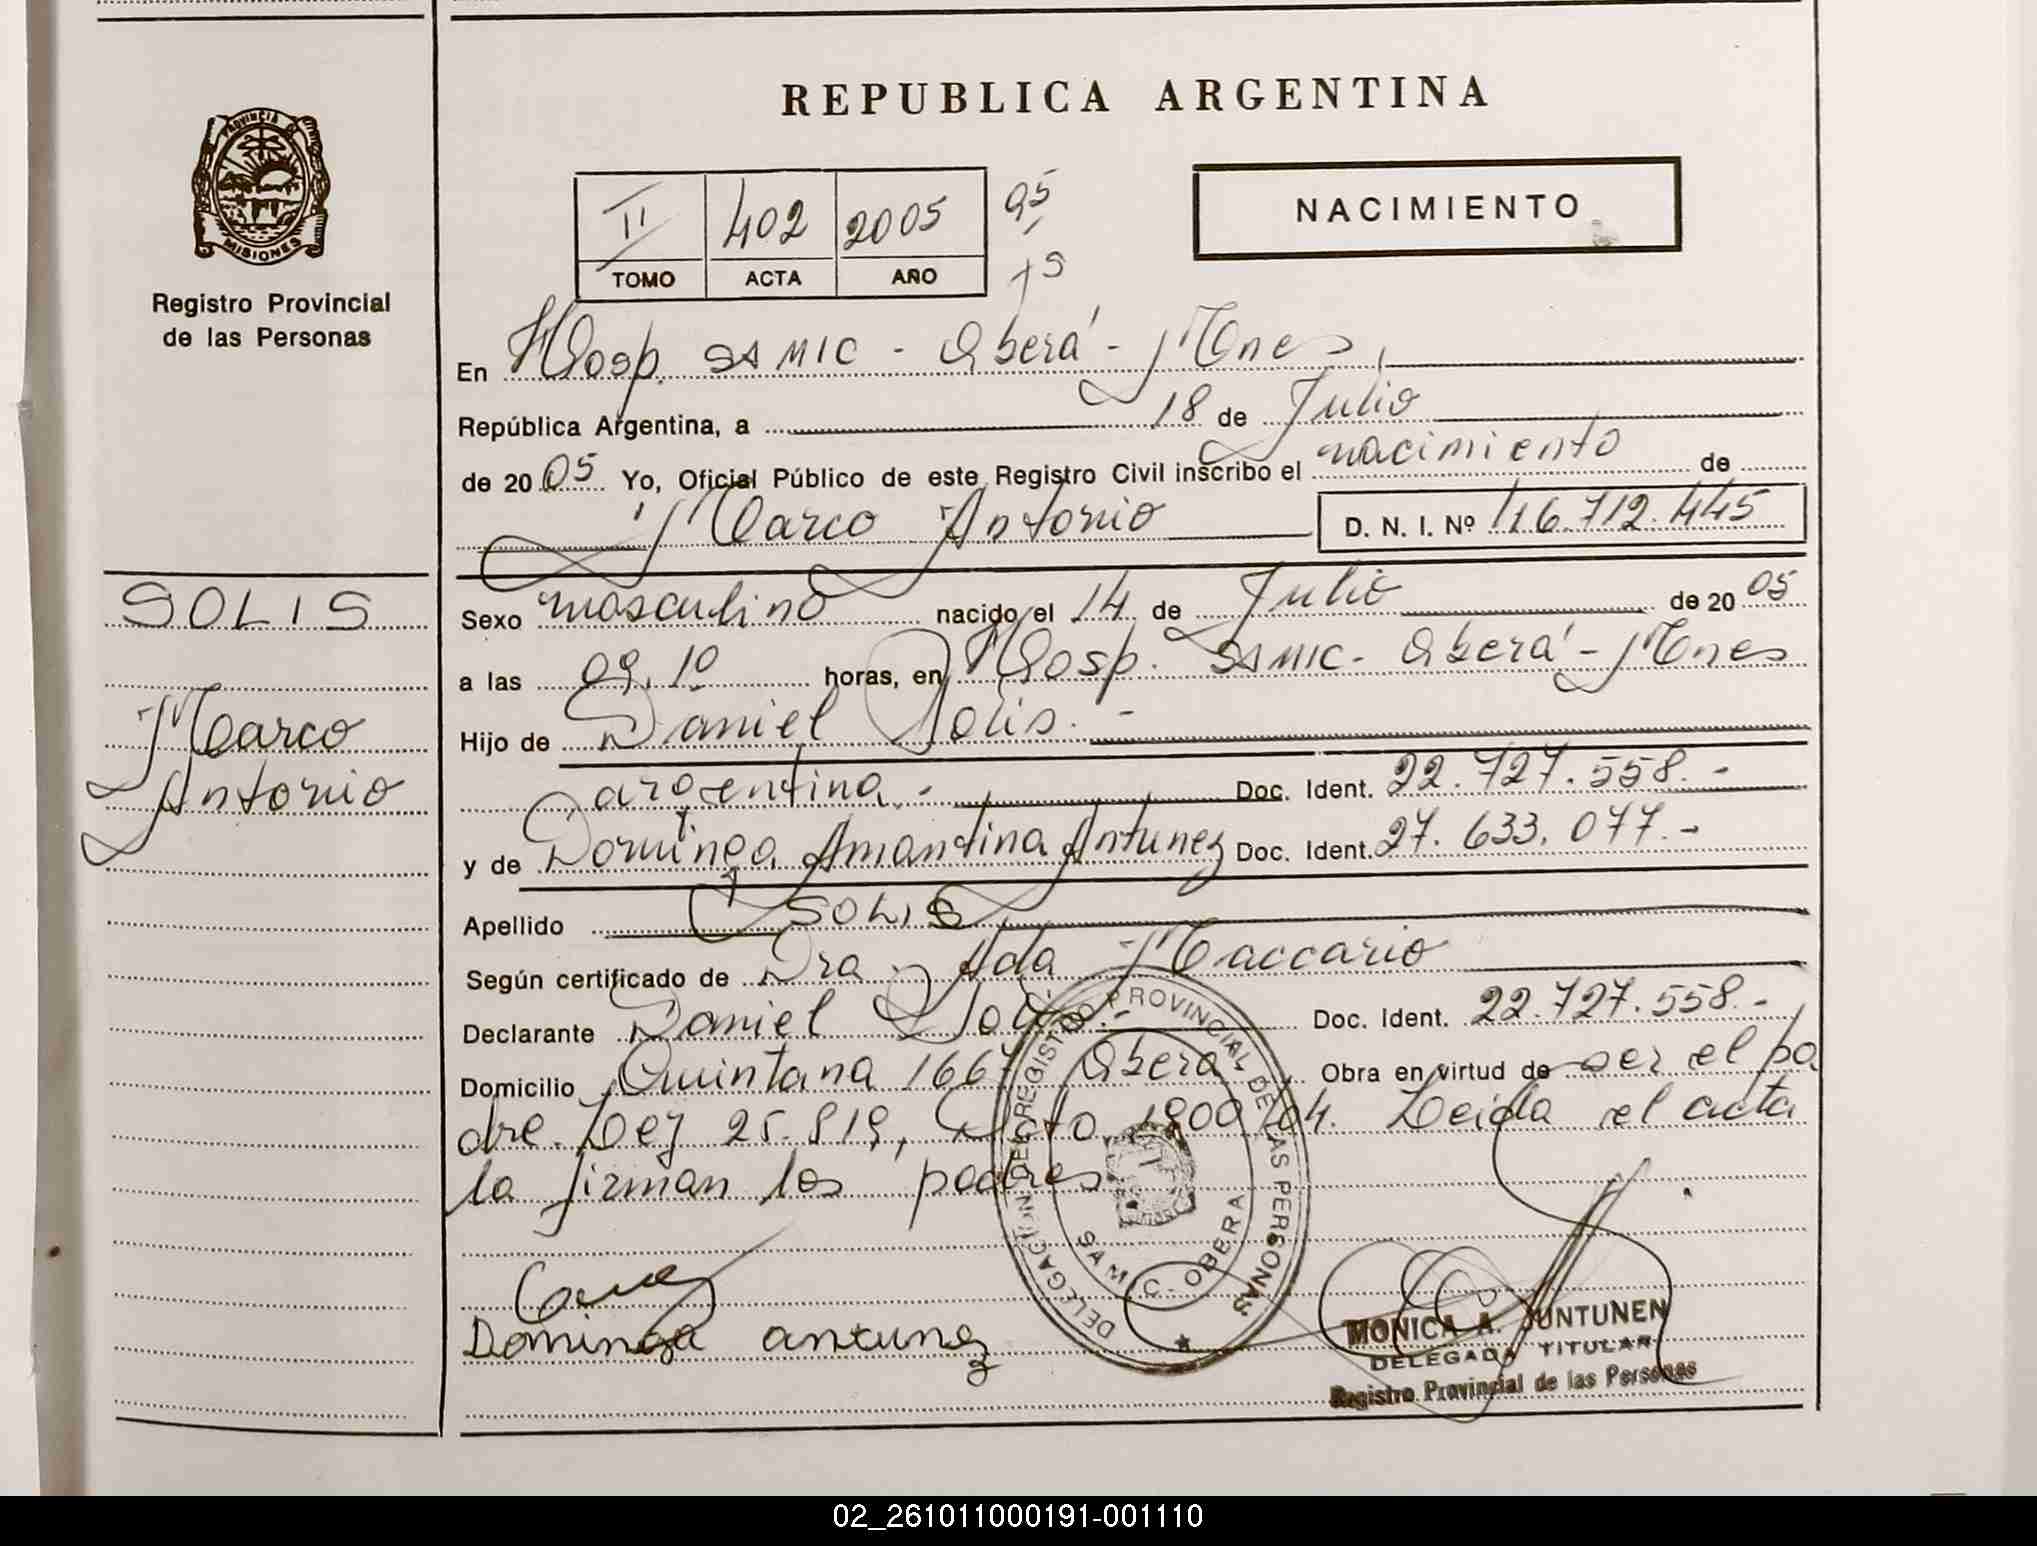 REPUBLICA ARGENTINA
PROVINCIA DE
MISIONES
Registro Provincial
de las Personas
II 402 2005
TOMO ACTA AÑO
NACIMIENTO
En Hosp. SAMIC - Oberá - Mnes,
República Argentina, a 18 de Julio
de 2005 Yo, Oficial Público de este Registro Civil inscribo el nacimiento de
Marco Antonio D. N. I. Nº 46.712.445
SOLIS
Marco
Antonio
Sexo masculino nacido el 14 de Julio de 2005
a las 09.10 horas, en Hosp. SAMIC - Oberá - Mnes
Hijo de Daniel Solis. -
argentina. - Doc. Ident. 22.727.558. -
y de Dominga Amantina Antunez Doc. Ident. 27.633.077. -
Apellido SOLIS
Según certificado de Dra. Ada Maccario
Declarante Daniel Solis. - Doc. Ident. 22.727.558. -
Domicilio Quintana 1667 Obera Obra en virtud de ser el pa
dre. Ley 25.819, Dcto 1900/04. Leida el acta
la firman los padres
DELEGACION DEL REGISTRO PROVINCIAL DE LAS PERSONAS
SAMIC. OBERA
Dominga antunez
MONICA A. JUNTUNEN
DELEGADA TITULAR
Registro Provincial de las Personas
02_261011000191-001110